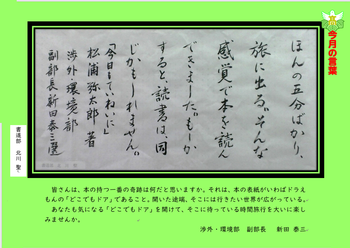 今月の言葉
ほんの五分ばかり、
旅に出る。そんな
感覚で本を読ん
できました。もしか
すると、読書は、同
じかもしれません。
松浦弥太郎 著
「今日もていねいに」
渉外・環境部
副部長 新田恭三選
書道部 北川 聖
皆さんは、本の持つ一番の奇跡は何だと思いますか。それは、本の表紙がいわばドラえ
もんの「どこでもドア」であること。開いた途端、そこには行きたい世界が広がっている。
あなたも気になる「どこでもドア」を開けて、そこに待っている時間旅行を大いに楽し
みませんか。
渉外・環境部 副部長 新田 恭三